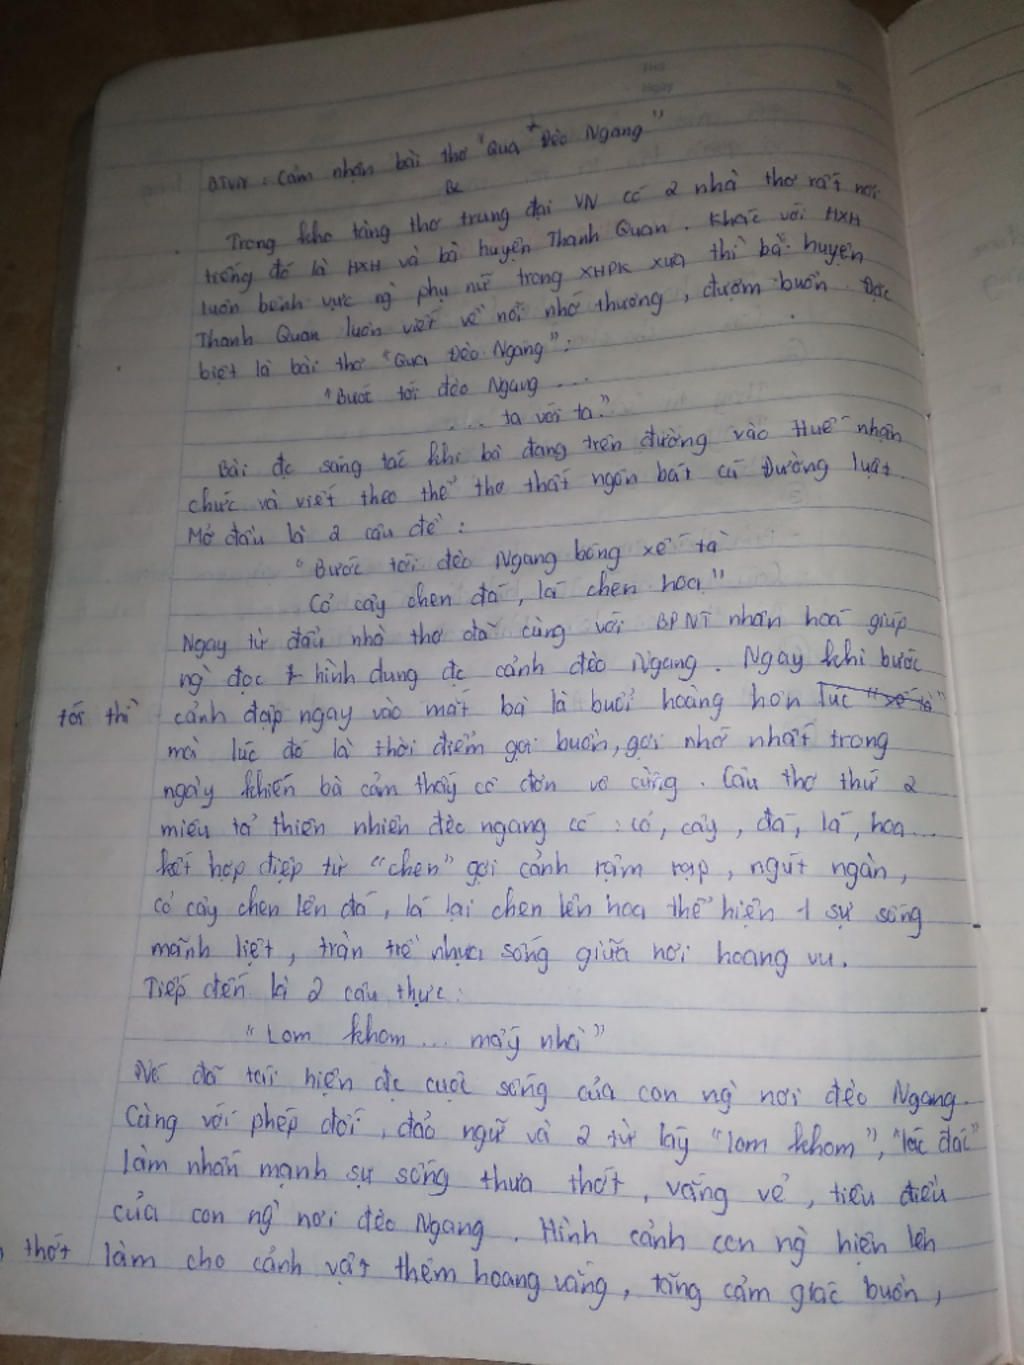 BTVN: Cảm nhận bài thơ "Qua Đèo Ngang"
BL
Trong kho tàng thơ trung đại VN có 2 nhà thơ rất nổi
tiếng đó là HXH và bà huyện Thanh Quan. Khác với HXH
luôn bênh vực ng` phụ nữ trong XHPK xưa thì bà huyện
Thanh Quan luôn viết về nỗi nhớ thương, đượm buồn. Đặc
biệt là bài thơ "Qua Đèo Ngang":
"Bước tới đèo Ngang ...
... ta với ta."
Bài đc sáng tác khi bà đang trên đường vào Huế nhận
chức và viết theo thể thơ thất ngôn bát cú Đường luật.
Mở đầu là 2 câu đề:
"Bước tới đèo Ngang bóng xế tà
Cỏ cây chen đá, lá chen hoa"
Ngay từ đầu nhà thơ đã cùng với BPNT nhân hoá giúp
ng` đọc hình dung đc cảnh đèo Ngang. Ngay khi bước
tới thì cảnh đập ngay vào mắt bà là buổi hoàng hôn lúc "xế tà"
mà lúc đó là thời điểm gợi buồn, gợi nhớ nhất trong
ngày khiến bà cảm thấy cô đơn vô cùng. Câu thơ thứ 2
miêu tả thiên nhiên đèo ngang có: cỏ, cây, đá, lá, hoa...
kết hợp điệp từ "chen" gợi cảnh rậm rạp, ngút ngàn,
cỏ cây chen lên đá, lá lại chen lên hoa thể hiện 1 sự sống
mãnh liệt, tràn trề nhựa sống giữa nơi hoang vu.
Tiếp đến là 2 câu thực:
"Lom khom ... mấy nhà"
Nó đã tái hiện đc cuộc sống của con ng` nơi đèo Ngang.
Cùng với phép đối, đảo ngữ và 2 từ láy "lom khom", "lác đác"
làm nhấn mạnh sự sống thưa thớt, vắng vẻ, tiêu điều
của con ng` nơi đèo Ngang. Hình cảnh con ng` hiện lên
thớt làm cho cảnh vật thêm hoang vắng, tăng cảm giác buồn,